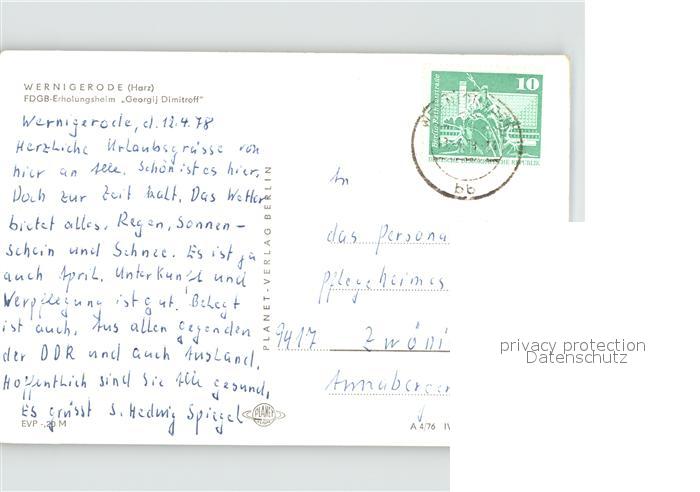 WERNIGERODE (Harz)
FDGB-Erholungsheim „Georgij Dimitroff"
Wernigerode, d. 12.4.78
Herzliche Urlaubsgrüsse von
hier an alle. Schön ist es hier.
Doch zur Zeit kalt. Das Wetter
bietet alles, Regen, Sonnen-
schein und Schnee. Es ist ja
auch April. Unterkunft und
Verpflegung ist gut. Belegt
ist auch. Aus allen gegenden
der DDR und auch Ausland.
Hoffentlich sind Sie alle gesund.
Es grüsst S. Hedwig Spiegel
EVP -,20 M
PLANET-VERLAG BERLIN
PLANET
A 4/76 IV
10
DEUTSCHE DEMOKRATISCHE REPUBLIK
bb
An
das Persona
Pflegeheimes
9417 Zwöni
Annaberger
privacy protection
Datenschutz